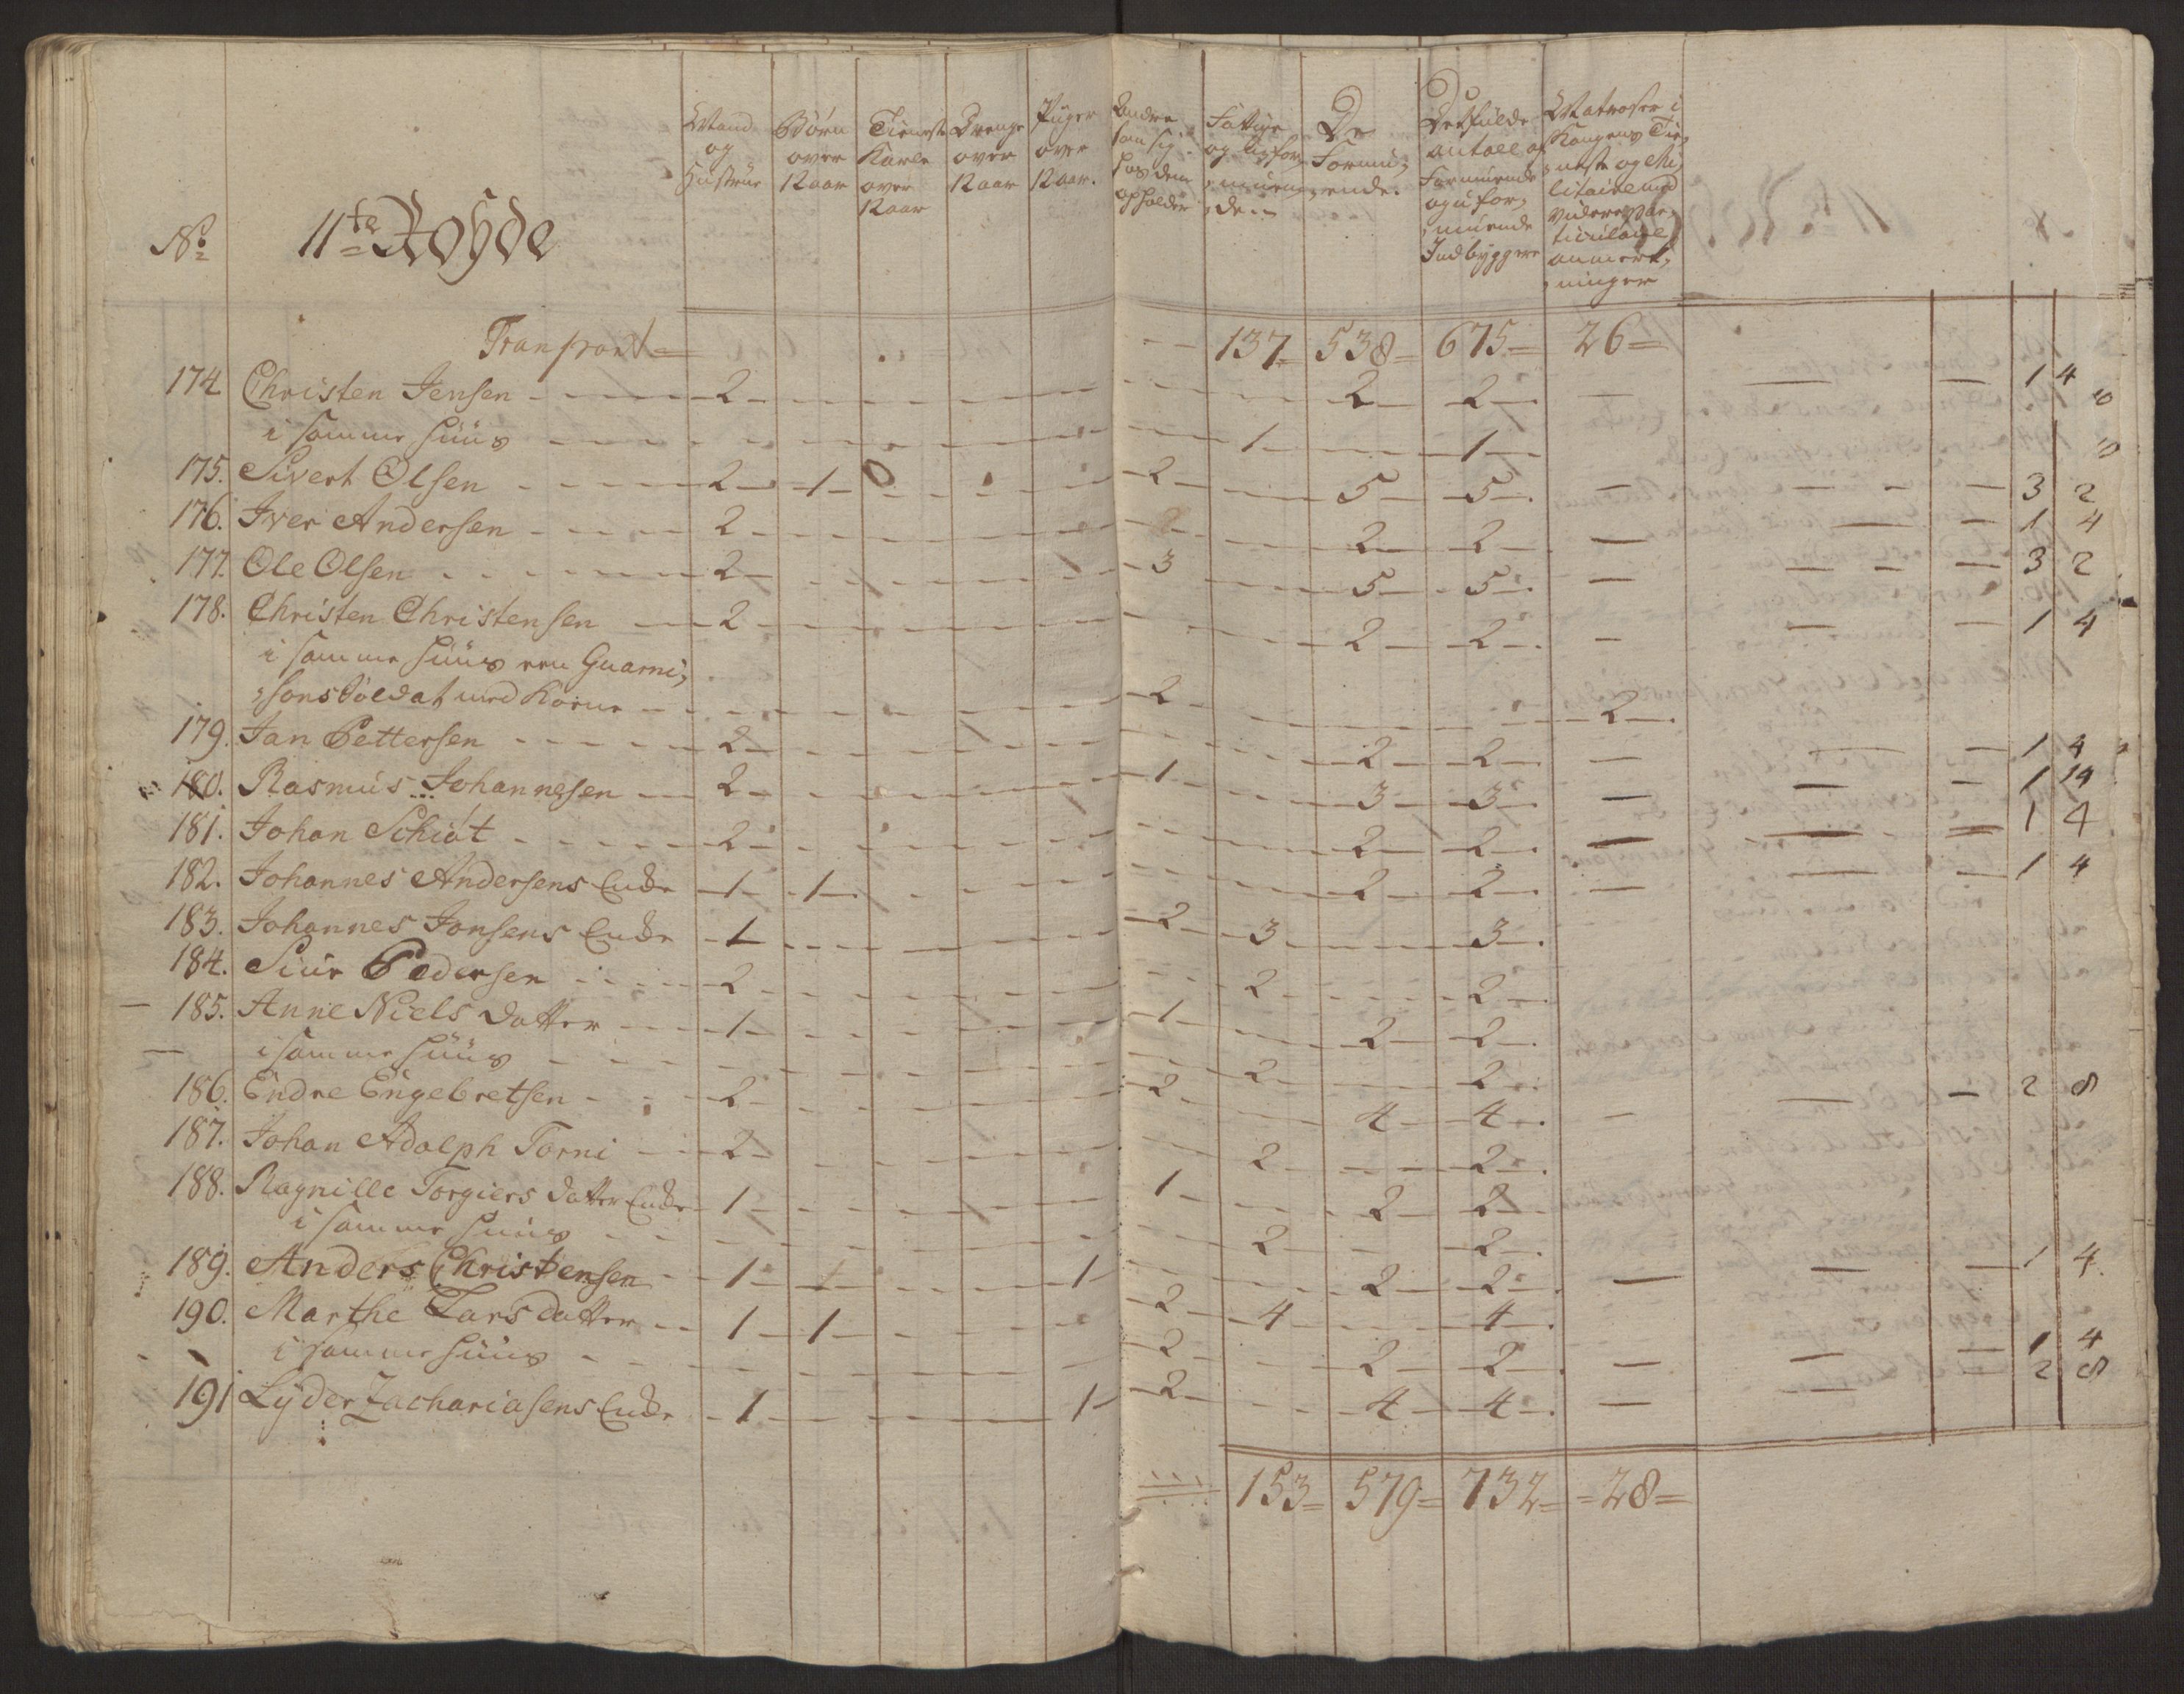 No. 11te Rohde
Mand og Hustrue | Børn over 12 aar | Tieneste Karle over 12 aar | Drenge over 12 aar | Piiger over 12 aar. | Andre som sig hos dem opholder | Fattige og uformuende | De Formuende. | Det fulde antall af Formuende og uformuende Indbyggere | Matroser i Kongens Tieneste og Militaire med videre particulaire anmerkninger
Transport 137 538 675 26
174 Christen Jensen 2 2 2 — 1 4
i samme Huus 1 1
175. Sivert Olsen 2 1 2 5 5 — 3 2
176. Iver Andersen 2 2 2 — 1 4
177. Ole Olsen 2 3 5 5 — 3 2
178. Christen Christensen 2 2 2 — 1 4
i samme Huus een Guarni
sons Soldat med Kone 2 2
179. Jan Pettersen 2 2 2 — 1 4
180. Rasmus Johannesen 2 1 3 3 — 1 14
181. Johan Schiøt 2 2 2 — 1 4
182. Johannes Andersens Encke 1 1 2 2 — 1 4
183. Johannes Jonsens Encke 1 2 3 3
184. Siur Pedersen 2 2 2
185. Anne Niels datter 1 1 2 2
i samme Huus 2 2
186. Endre Engebretsen 2 2 4 4 — 2 8
187. Johan Adolph Torni 2 2 2
188. Ragnille Torgiers datter Encke 1 1 2 2
i samme Huus 2 2
189. Anders Christensen 1 1 2 2 — 1 4
190. Marthe Lars datter 1 1 2 4 4
i samme Huus 2 2 2 — 1 4
191 Lyder Zachariasens Encke 1 1 2 4 4 — 2 8
153 579 732 28